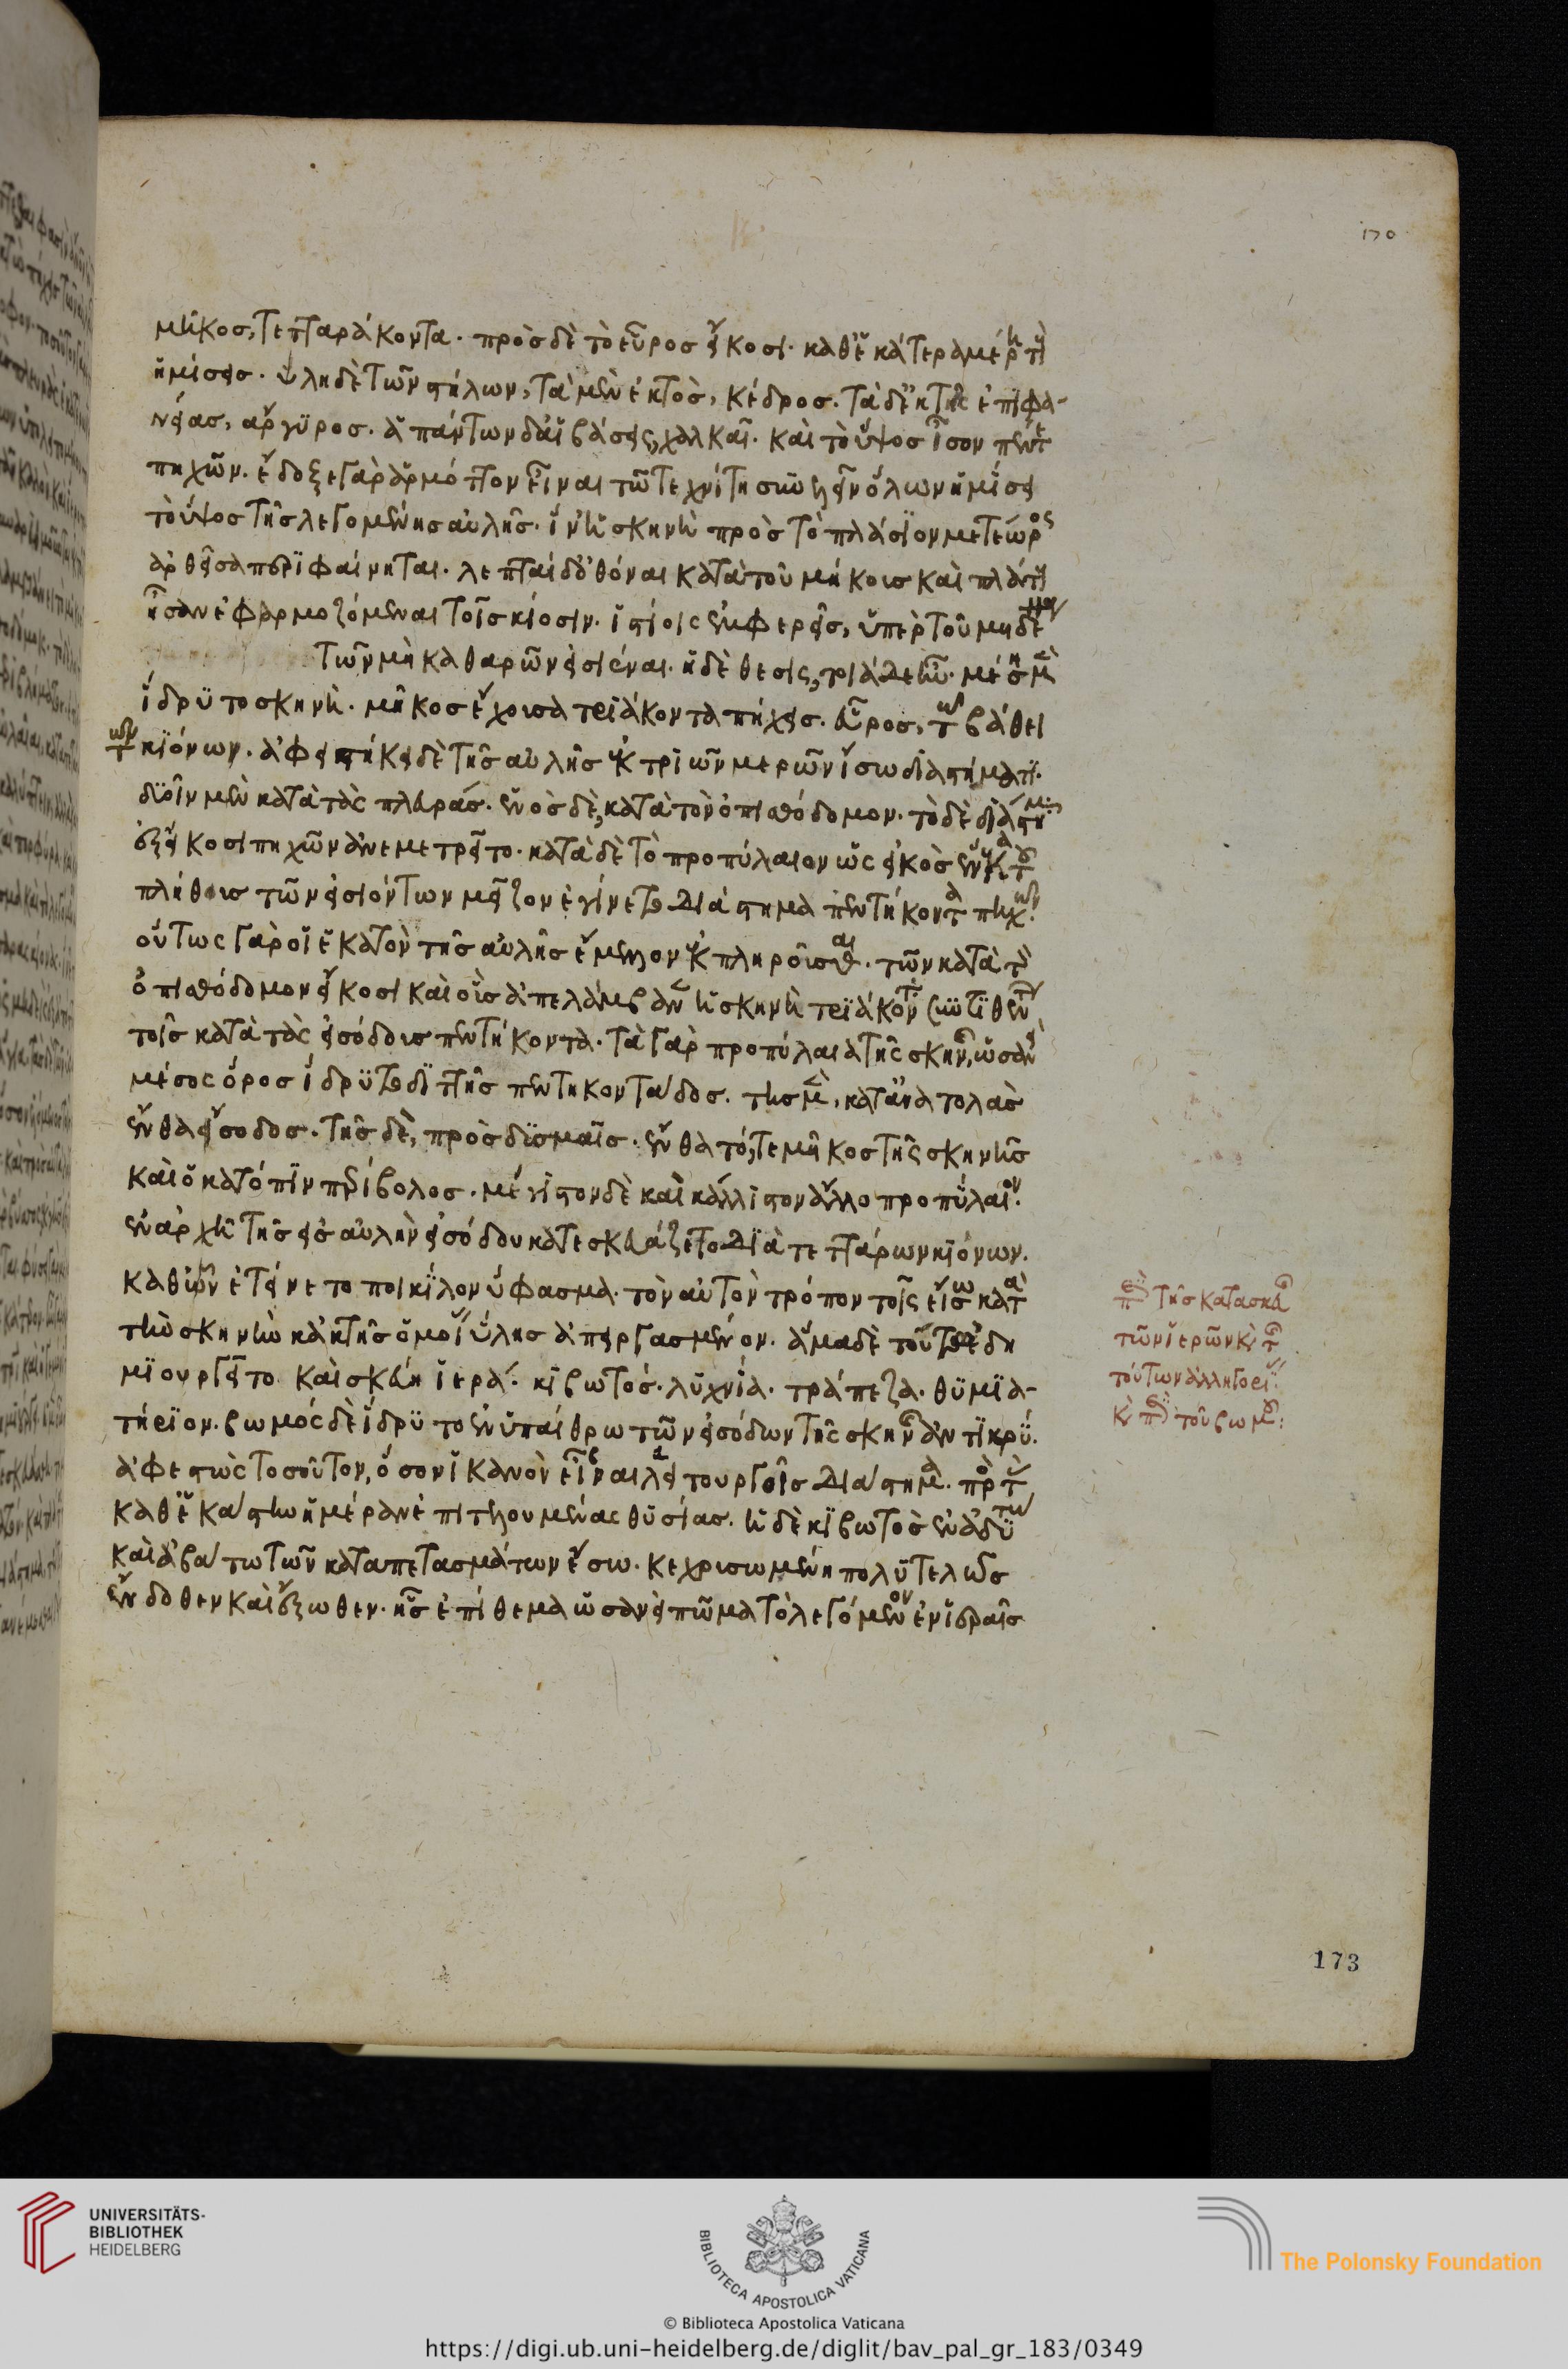 μῆκος, τετταράκοντα. πρὸς δὲ τὸ εὖρος εἴκοσι. καθ' ἑκάτερα μέρη τῆ
ἡμίσει. ὕλη δὲ τῶν στήλων, τὰ μὲν ἐκτὸς, κέδρος. τὰ δ' ἐκ τῆς ἐπιφα-
νείας, ἄργυρος. ἁπάντων δ' αἱ βάσεις, χαλκαῖ. καὶ τὸ ὕψος ἴσον πέντε
πηχῶν. ἔδοξε γὰρ ἁρμόττον εἶναι τῶ τεχνίτη συνελεῖν ὅλων ἡμίσει
τὸ ὕψος τῆς λεγομένης αὐλῆς. ἵν' ἡ σκηνὴ πρὸς τὸ πλάσιον μετέωρος
ἀρθεῖσα περιφαίνηται. λεπταὶ δ' ὀθόναι κατὰ τοῦ μήκους καὶ πλάτους
ἦσαν ἐφαρμοζόμεναι τοῖς κίοσιν. ἱστίοις ἐμφερεῖς, ὑπὲρ τοῦ μηδένα
τῶν μὴ καθαρῶν εἰσιέναι. ἡ δὲ θέσις, τοιάδε ἦν. μέση μὲν
ἵδρυτο σκηνὴ. μῆκος ἔχουσα τριάκοντα πήχεις. εὖρος, τῶ βάθει
τῶν κιόνων. ἀφειστήκει δὲ τῆς αὐλῆς ἐκ τριῶν μερῶν ἴσω διαστήματι.
δυοῖν μὲν κατὰ τὰς πλευράς. ἑνὸς δὲ, κατὰ τὸν ὀπισθόδομον. τὸ δὲ διάστημα
ἐξ εἴκοσι πηχῶν ἀνεμετρεῖτο. κατὰ δὲ τὸ προπύλαιον ὡς εἰκὸς ἕνεκα τοῦ
πλήθους τῶν εἰσιόντων μεῖζον ἐγίνετο διάστημα πεντήκοντα πηχῶν.
οὕτως γὰρ οἱ ἑκατὸν τῆς αὐλῆς ἔμελλον ἐκπληροῦσθαι. τῶν κατὰ τὸν
ὀπισθόδομον εἴκοσι καὶ οὓς ἀπελάμβανεν ἡ σκηνὴ τριάκοντα συντιθέντων
τοῖς κατὰ τὰς εἰσόδους πεντήκοντα. τὰ γὰρ προπύλαια τῆς σκηνῆς, ὡσανεὶ
μέσος ὅρος ἵδρυτο διττῆς πεντηκοντάδος. τῆς μὲν, κατ' ἀνατολὰς
ἔνθα εἴσοδος. τῆς δὲ, πρὸς δυσμαῖς. ἔνθα τό, τε μῆκος τῆς σκηνῆς
καὶ ὁ κατόπιν περίβολος. μέγιστον δὲ καὶ κάλλιστον ἄλλο προπύλαιον.
ἐν ἀρχῆ τῆς εἰς αὐλὴν εἰσόδου κατεσκευάζετο διὰ τεττάρων κιόνων.
καθ' ὧν ἐτείνετο ποικίλον ὕφασμα. τὸν αὐτὸν τρόπον τοῖς εἴσω κατὰ
τὴν σκηνὴν κἀκ τῆς ὁμοίας ὕλης ἀπειργασμένον. ἅμα δὲ τούτοις ἐδη
μιουργεῖτο καὶ σκεύη ἱερά. κιβωτός. λυχνία. τράπεζα. θυμια-
τήριον. βωμὸς δὲ ἵδρυτο ἐν ὑπαίθρω τῶν εἰσόδων τῆς σκηνῆς ἀντικρύ.
ἀφεστὼς τοσοῦτον, ὅσον ἱκανὸν εἶναι λειτουργοῖς διάστημα. πρὸς τὰς
καθ' ἑκάστην ἡμέραν ἐπιτελουμένας θυσίας. ἡ δὲ κιβωτὸς ἐν ἀδύτω
καὶ ἀβάτω τῶν καταπετασμάτων εἴσω. κεχρυσωμένη πολυτελῶς
ἔνδοθεν καὶ ἔξωθεν. ἧς ἐπίθεμα ὡσανεὶ πῶμα τὸ λεγόμενον ἐν ἱεραῖς
περὶ τῆς κατασκευῆς
τῶν ἱερῶν καὶ τῆς
τούτων ἀλληγορίας.
καὶ περὶ τοῦ βωμοῦ:
170
173
UNIVERSITÄTS-
BIBLIOTHEK
HEIDELBERG
BIBLIOTECA APOSTOLICA VATICANA
The Polonsky Foundation
© Biblioteca Apostolica Vaticana
https://digi.ub.uni-heidelberg.de/diglit/bav_pal_gr_183/0349